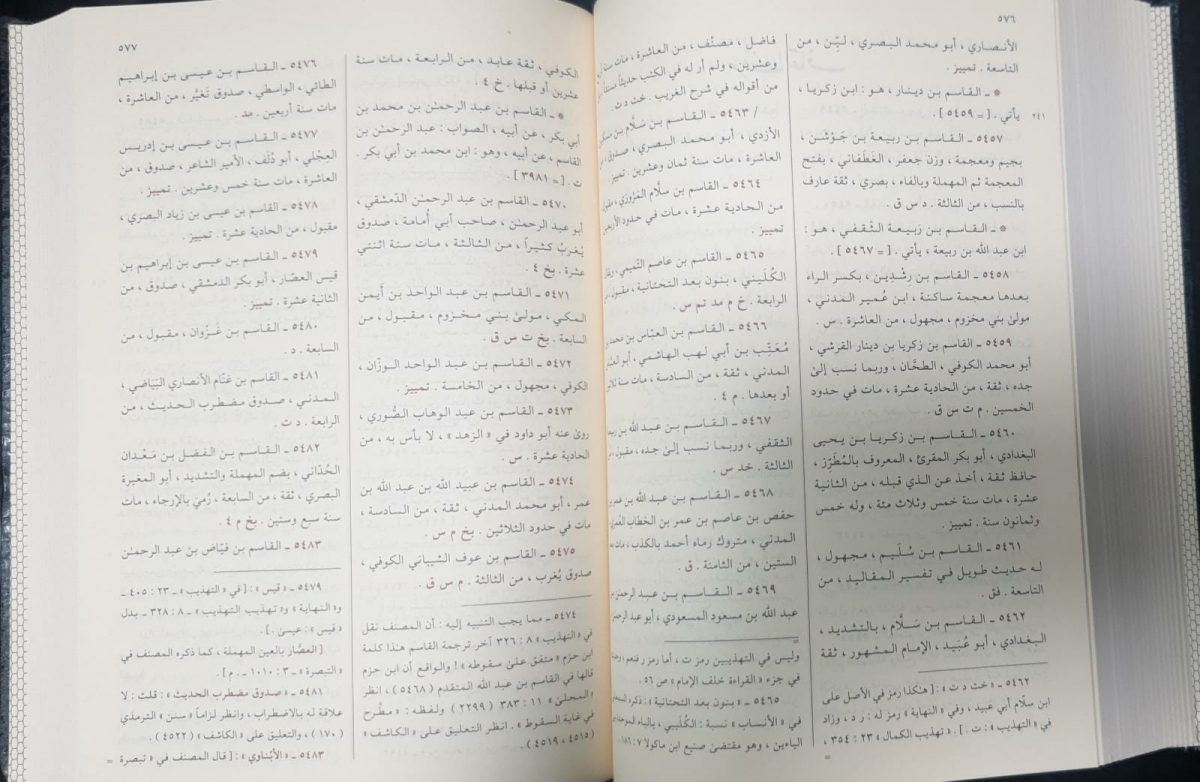 ٥٧٦
الأنصاري ، أبو محمد البصري ، لَيِّن ، من
التاسعة . تمييز .
* ـ القاسم بن دينار ، هو : ابن زكريا ،
يأتي . [ = ٥٤٥٩ ] .
٢٤١
٥٤٥٧ ـ القاسم بن ربيعة بن جَوْشَن ،
بجيم ومعجمة ، وزن جعفر ، الغَطَفاني ، بفتح
المعجمة ثم المهملة وبالفاء ، بصري ، ثقة عارف
بالنسب ، من الثالثة . د س ق .
* ـ القاسم بن رَبيعة الثقفي ، هو :
ابن عبد الله بن ربيعة ، يأتي . [ = ٥٤٦٧ ] .
٥٤٥٨ ـ القاسم بن رِشْدِين ، بكسر الراء
بعدها معجمة ساكنة ، ابن عُمير المدني ،
مولىٰ بني مخزوم ، مجهول ، من العاشرة . س .
٥٤٥٩ ـ القاسم بن زكريا بن دينار القرشي ،
أبو محمد الكوفي ، الطحّان ، وربما نسب إلىٰ
جده ، ثقة ، من الحادية عشرة ، مات في حدود
الخمسين . م ت س ق .
٥٤٦٠ ـ القاسم بن زكريا بن يحيى
البغدادي ، أبو بكر المقرئ ، المعروف بالمُطَرِّز ،
حافظ ثقة ، أخذ عن الذي قبله ، من الثانية
عشرة ، مات سنة خمس وثلاث مئة ، وله خمس
وثمانون سنة . تمييز .
٥٤٦١ ـ القاسم بن سُلَيم ، مجهول ،
له حديث طويل في تفسير المقاليد ، من
التاسعة . فق .
٥٤٦٢ ـ القاسم بن سَلّام ، بالتشديد ،
البغدادي ، أبو عُبيد ، الإمام المشهور ، ثقة
٥٤٦٢ ـ « خت د ت » : [ هكذا رمز في الأصل على
ابن سلّام أبي عبيد ، وفي « النهاية » رمز له : ر د ، وزاد
في « التهذيب » : ت . ] . « تهذيب الكمال » ٢٣ : ٣٥٤ ،
فاضل ، مصنِّف ، من العاشرة ، مات سنة أربع
وعشرين ، ولم أر له في الكتب حديثاً مسنداً
من أقواله في شرح الغريب . خت د ت .
/ ٥٤٦٣ ـ القاسم بن سَلّام بن
الأزدي ، أبو محمد البصري ، صدوق ، من
العاشرة ، مات سنة ثمان وعشرين . تمييز .
٥٤٦٤ ـ القاسم بن سلّام المَرْوَزي ، مقبول
من الحادية عشرة ، مات في حدود الأربعين
تمييز .
٥٤٦٥ ـ القاسم بن عاصم التميمي ،
الكُلَيني ، بنون بعد التحتانية ، مقبول ، من
الرابعة . خ م مد تم س .
٥٤٦٦ ـ القاسم بن العباس بن محمد بن
مُعَتِّب بن أبي لهب الهاشمي ، أبو العباس
المدني ، ثقة ، من السادسة ، مات سنة ثلاثين
أو بعدها . م ٤ .
٥٤٦٧ ـ القاسم بن عبد الله بن ربيعة
الثقفي ، وربما نسب إلىٰ جده ، مقبول ، من
الثالثة . خد س .
٥٤٦٨ ـ القاسم بن عبد الله بن عمر بن
حفص بن عاصم بن عمر بن الخطاب العُمري
المدني ، متروك رماه أحمد بالكذب ، مات بعد
الستين ، من الثامنة . ق .
٥٤٦٩ ـ القاسم بن عبد الرحمن بن
عبد الله بن مسعود المسعودي ، أبو عبد الرحمن
وليس في التهذيبين رمز ت ، أما رمز ر فنعم ،
في جزء « القراءة خلف الإمام » ص ٥٦ .
٥٤٦٥ ـ « بنون بعد التحتانية » : ذكره
في « الأنساب » نسبة : الكُلَيبي ، بالباء الموحدة
الياءين ، وهو مقتضىٰ صنيع ابن ماكولا ٧ : ١٨٦ .
=
٥٧٧
الكوفي ، ثقة عابد ، من الرابعة ، مات سنة
عشرين أو قبلها . خ ٤ .
* ـ القاسم بن عبد الرحمٰن بن محمد بن
أبي بكر ، عن أبيه ، الصواب : عبد الرحمٰن بن
القاسم ، عن أبيه ، وهو : ابن محمد بن أبي بكر .
ت . [ = ٣٩٨١ ] .
٥٤٧٠ ـ القاسم بن عبد الرحمٰن الدِّمشقي ،
أبو عبد الرحمٰن ، صاحب أبي أُمامة ، صدوق
يُغرِبُ كثيراً ، من الثالثة ، مات سنة اثنتي
عشرة . بخ ٤ .
٥٤٧١ ـ القاسم بن عبد الواحد بن أيمن
المكي ، مولىٰ بني مخزوم ، مقبول ، من
السابعة . بخ ت س ق .
٥٤٧٢ ـ القاسم بن عبد الواحد الوزّان ،
الكوفي ، مجهول ، من الخامسة . تمييز .
٥٤٧٣ ـ القاسم بن عبد الوهاب الصُّوري ،
روىٰ عنه أبو داود في « الزهد » ، لا بأس به ، من
الحادية عشرة . س .
٥٤٧٤ ـ القاسم بن عبيد الله بن عبد الله بن
عمر ، أبو محمد المدني ، ثقة ، من السادسة ،
مات في حدود الثلاثين . بخ م س .
٥٤٧٥ ـ القاسم بن عوف الشيباني الكوفي ،
صدوق يُغرب ، من الثالثة . م س ق .
٥٤٧٤ ـ مما يجب التنبيه إليه : أن المصنف نقل
في « التهذيب » ٨ : ٣٢٦ آخر ترجمة القاسم هذا كلمة
ابن حزم « متفق علىٰ سقوطه » ! والواقع أن ابن حزم
قالها في القاسم بن عبد الله المتقدم ( ٥٤٦٨ ) ، انظر
« المحلىٰ » ١١ : ٣٨٣ ( ٢٢٩٩ ) ولفظه : « مطَّرح
في غاية السقوط » . انظر التعليق على « الكاشف »
( ٤٥١٥ ، ٤٥١٩ ) .
٥٤٧٦ ـ القاسم بن عيسى بن إبراهيم
الطائي ، الواسطي ، صدوق تَغَيَّر ، من العاشرة ،
مات سنة أربعين . مد .
٥٤٧٧ ـ القاسم بن عيسى بن إدريس
العِجْلي ، أبو دُلَف ، الأمير الشاعر ، صدوق ، من
العاشرة ، مات سنة خمس وعشرين . تمييز .
٥٤٧٨ ـ القاسم بن عيسى بن زياد البصري ،
مقبول ، من الحادية عشرة . تمييز .
٥٤٧٩ ـ القاسم بن عيسى بن إبراهيم بن
قيس العصّار ، أبو بكر الدمشقي ، صدوق ، من
الثانية عشرة . تمييز .
٥٤٨٠ ـ القاسم بن غَزْوان ، مقبول ، من
السابعة . د .
٥٤٨١ ـ القاسم بن غَنّام الأنصاري البَيَاضي ،
المدني ، صدوق مضطرب الحديث ، من
الرابعة . د ت .
٥٤٨٢ ـ القاسم بن الفضل بن مَعْدان
الحُدّاني ، بضم المهملة والتشديد ، أبو المغيرة
البصري ، ثقة ، من السابعة ، رُمِيَ بالإرجاء ، مات
سنة سبع وستين . بخ م ٤ .
٥٤٨٣ ـ القاسم بن فيّاض بن عبد الرحمٰن
٥٤٧٩ ـ « قيس » : [ في « التهذيب » ٢٣ : ٤٠٥ ـ
و« النهاية » و« تهذيب التهذيب » ٨ : ٣٢٨ ـ بدل
« قيس » : عيسىٰ . ] .
[ العصّار بالعين المهملة ، كما ذكره المصنف في
« التبصرة » ٣ : ١٠١٠ ـ . م ] .
٥٤٨١ ـ « صدوق مضطرب الحديث » : قلت : لا
علاقة له بالاضطراب ، وانظر لزاماً « سنن » الترمذي
( ١٧٠ ) ، والتعليق على « الكاشف » ( ٤٥٢٢ ) .
٥٤٨٣ ـ « الأَبْناوي » : [ قال المصنف في « تبصرة
=